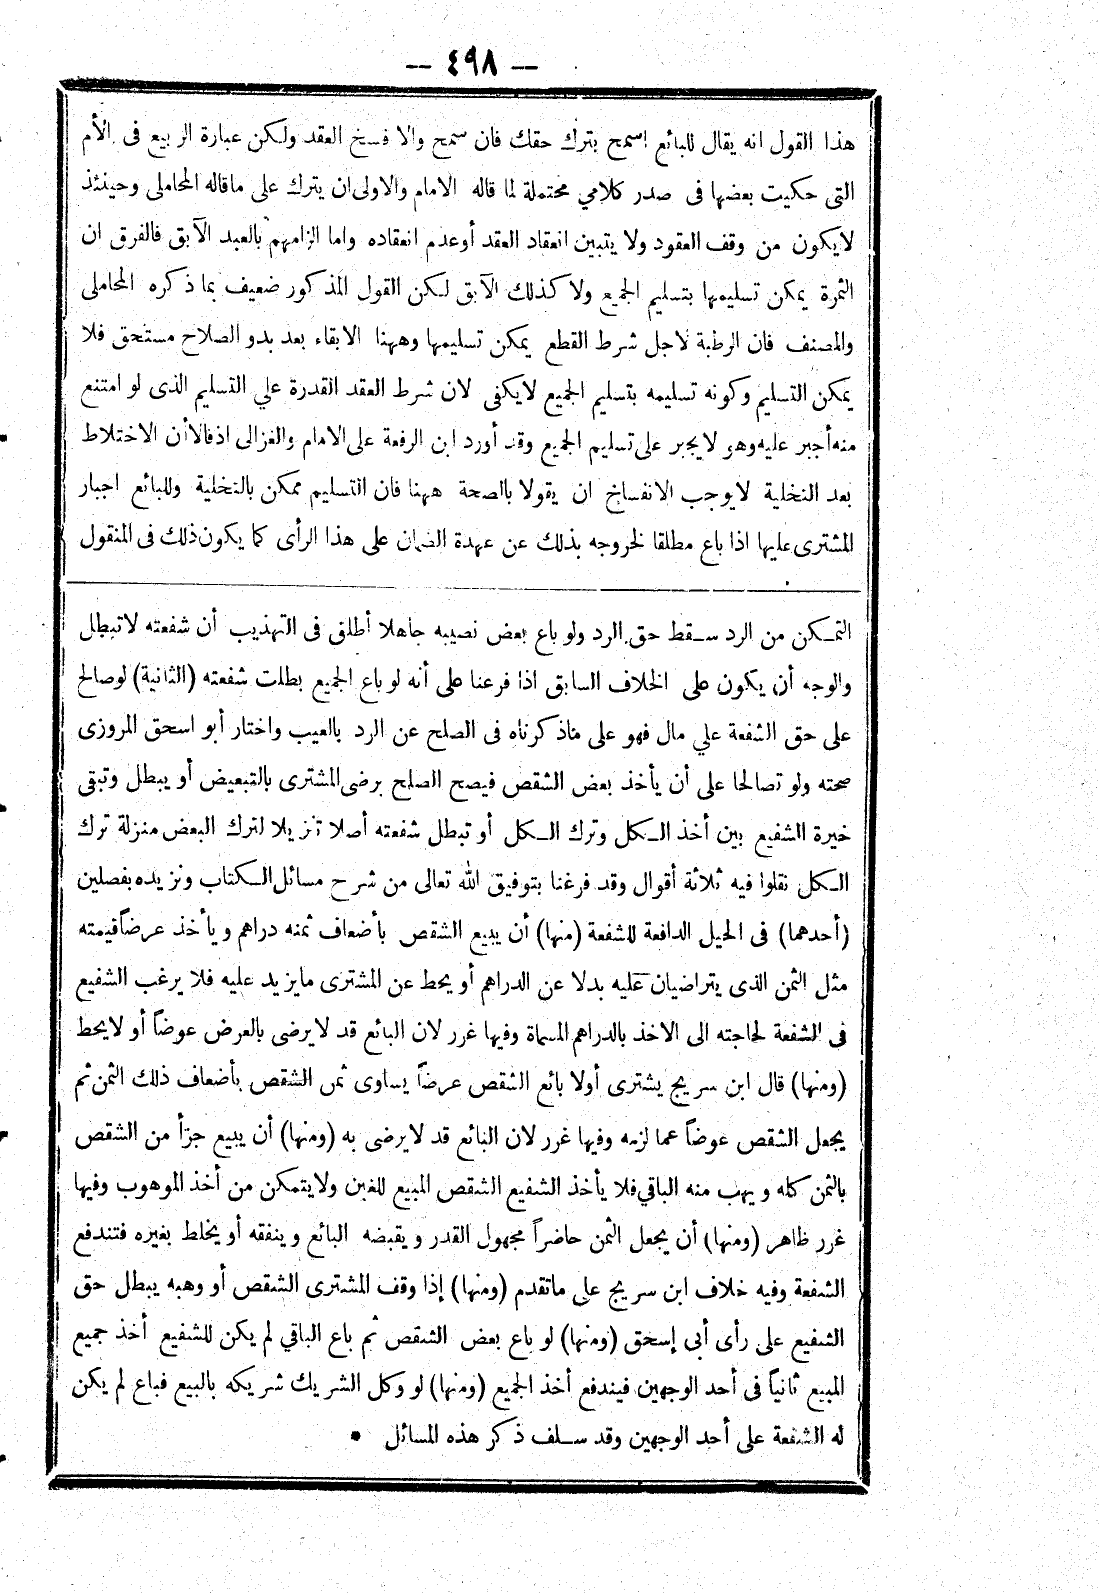 — ٤٩٨ —
هذا القول انه يقال للبائع اسمح بترك حقك فان سمح والا فسخ العقد ولكن عبارة الربيع فى الأم
التى حكيت بعضها فى صدر كلامي محتملة لما قاله الامام والاولى ان يترك على ماقاله المحاملى وحينئذ
لايكون من وقف العقود ولا يتبين انعقاد العقد أوعدم انعقاده واما الزامهم بالعبد الآبق فالفرق ان
الثمرة يمكن تسليمها بتسليم الجميع ولا كذلك الآبق لكن القول المذكور ضعيف بما ذكره المحاملى
والمصنف فان الرطبة لاجل شرط القطع يمكن تسليمها وههنا الابقاء بعد بدو الصلاح مستحق فلا
يمكن التسليم وكونه تسليمه بتسليم الجميع لايكفى لان شرط العقد القدرة علي التسليم الذى لو امتنع
منه أجبر عليه وهو لا يجبر على تسليم الجميع وقد أورد ابن الرفعة على الامام والغزالى اذقالا أن الاختلاط
بعد التخلية لايوجب الانفساخ ان يقولا بالصحة ههنا فان التسليم ممكن بالتخلية وللبائع اجبار
المشترى عليها اذا باع مطلقا لخروجه بذلك عن عهدة الضمان على هذا الرأى كما يكون ذلك فى المنقول
التمكن من الرد سقط حق الرد ولو باع بعض نصيبه جاهلا أطلق فى التهذيب أن شفعته لا تبطل
والوجه أن يكون على الخلاف السابق اذا فرعنا على أنه لو باع الجميع بطلت شفعته (الثانية) لو صالح
على حق الشفعة علي مال فهو على ماذكرناه فى الصلح عن الرد بالعيب واختار أبو اسحق المروزى
صحته ولو تصالحا على أن يأخذ بعض الشقص فيصح الصلح برضى المشترى بالتبعيض أو يبطل وتبقى
خيرة الشفيع بين أخذ الكل وترك الكل أو تبطل شفعته أصلا تنزيلا لترك البعض منزلة ترك
الكل نقلوا فيه ثلاثة أقوال وقد فرغنا بتوفيق الله تعالى من شرح مسائل الكتاب ونزيده بفصلين
(أحدهما) فى الحيل الدافعة للشفعة (منها) أن يبيع الشقص بأضعاف ثمنه دراهم ويأخذ عرضاً قيمته
مثل الثمن الذى يتراضيان عليه بدلا عن الدراهم أو يحط عن المشترى مايزيد عليه فلا يرغب الشفيع
فى الشفعة لحاجته الى الاخذ بالدراهم المسماة وفيها غرر لان البائع قد لايرضى بالعرض عوضاً أو لايحط
(ومنها) قال ابن سريج يشترى أولا بائع الشقص عرضاً يساوى ثمن الشقص بأضعاف ذلك الثمن ثم
يجعل الشقص عوضاً عما لزمه وفيها غرر لان البائع قد لايرضى به (ومنها) أن يبيع جزأ من الشقص
بالثمن كله ويهب منه الباقي فلا يأخذ الشفيع الشقص المبيع للغبن ولايتمكن من أخذ الموهوب وفيها
غرر ظاهر (ومنها) أن يجعل الثمن حاضراً مجهول القدر ويقبضه البائع وينفقه أو يخلط بغيره فتندفع
الشفعة وفيه خلاف ابن سريج على ماتقدم (ومنها) إذا وقف المشترى الشقص أو وهبه يبطل حق
الشفيع على رأى أبى إسحق (ومنها) لو باع بعض الشقص ثم باع الباقي لم يكن للشفيع أخذ جميع
المبيع ثانياً فى أحد الوجهين فيندفع أخذ الجميع (ومنها) لو وكل الشريك شريكه بالبيع فباع لم يكن
له الشفعة على أحد الوجهين وقد سلف ذكر هذه المسائل •